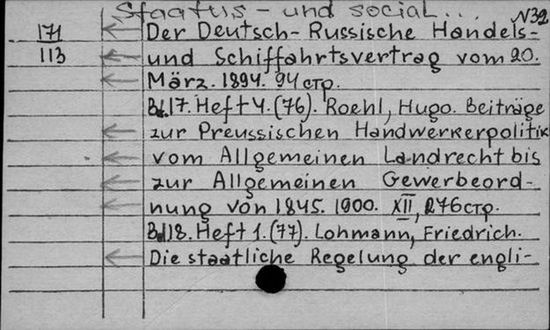 Staatus - und social...
N32
171
Der Deutsch-Russische Handels-
113
und Schiffahrtsvertrag vom 20.
März. 1894. 94 стр.
Bd.17. Heft 4. (76). Roehl, Hugo. Beiträge
zur Preussischen Handwerkerpolitik
vom Allgemeinen Landrecht bis
zur Allgemeinen Gewerbeord-
nung von 1845. 1900. XII, 276 стр.
Bd.18. Heft 1. (77). Lohmann, Friedrich.
Die staatliche Regelung der engli-